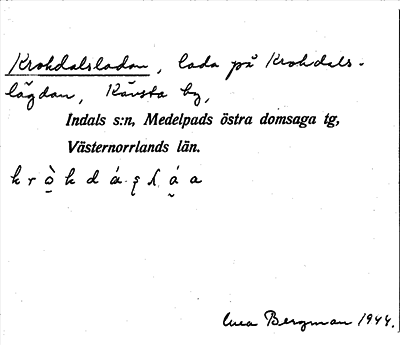 Krokdalsladan, lada på Krokdals-
lägdan, Kävsta by,
Indals s:n, Medelpads östra domsaga tg,
Västernorrlands län.
Bergman 1944.